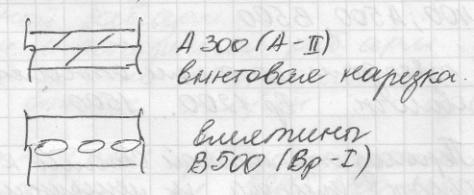 А300 (А-II)
винтовая нарезка.
вмятины
В500 (Вр-I)